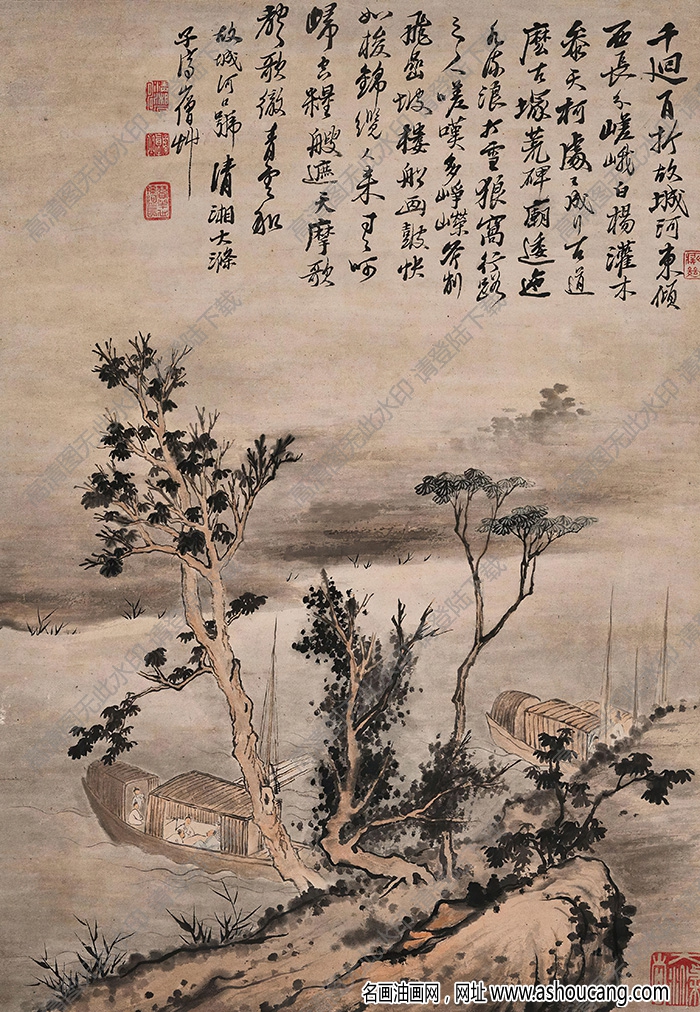 千迴百折故城河東傾
西長嵯峨白楊灌木
參天柯處處成行古道
麼古塚荒碑廟逶迤
水流浪打雪狼窩行路
之人嗟嘆多崢嶸斧削
飛巒坡樓船畫鼓快
如梭錦纜人來
歸去糧艘遮天摩歌
聲歌徹青雲和
故城河口號 清湘大滌
子濟山僧艸
高清图无此水印·请登陆下载
名画油画网，网址 www.ashoucang.com